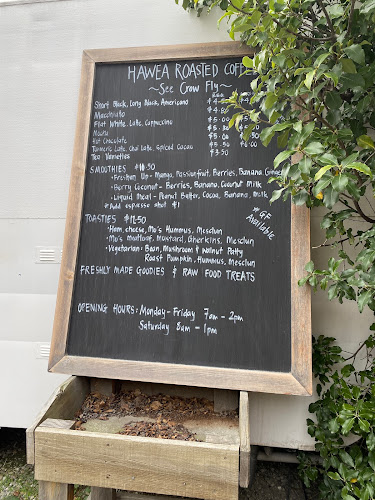 HAWEA ROASTED COFFEE
~See Crow Fly~
Short Black, Long Black, Americano
Macchiato
Flat White, Latte, Cappuccino
Mocha
Hot Chocolate
Turmeric Latte, Chai Latte, Spiced Cocoa
Tea Varieties $3.50
SMOOTHIES $10.50
-Freshen Up - Mango, Passionfruit, Berries, Banana, Ginger
-Berry Coconut - Berries, Banana, Coconut Milk
-Liquid Meal - Peanut Butter, Cocoa, Banana, Milk
*Add espresso shot $1
*GF Available
TOASTIES $12.50
-Ham, cheese, Mo's Hummus, Mesclun
-Mo's meatloaf, mustard, Gherkins, Mesclun
-Vegetarian: Bean, Mushroom & walnut Patty
Roast Pumpkin, Hummus, Mesclun
FRESHLY MADE GOODIES & RAW FOOD TREATS
OPENING HOURS: Monday - Friday 7am - 2pm
Saturday 8am - 1pm